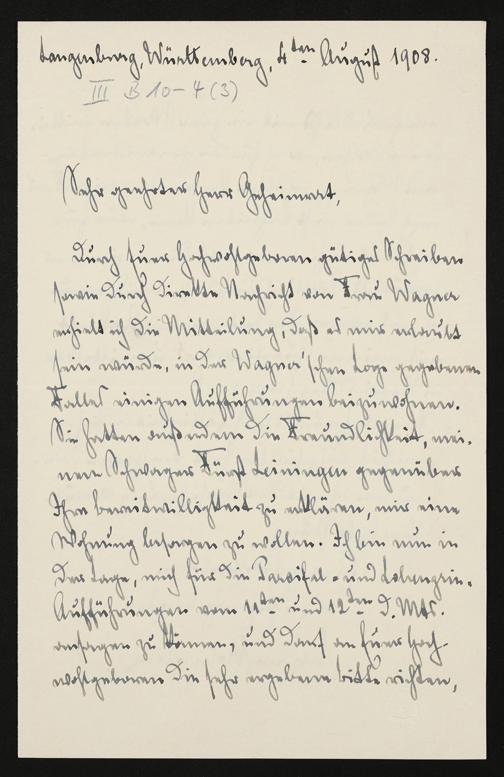 Langenburg, Württemberg, 4ten August 1908.
III B 10-4 (3)
Sehr geehrter Herr Geheimrat,
Durch Euer Hochwohlgeboren gütiges Schreiben
sowie durch direkte Nachricht von Frau Wagner
erhielt ich die Mitteilung, daß es mir erlaubt
sein würde, in der Wagner'schen Loge gegebenen
Falles einigen Aufführungen beizuwohnen.
Sie hatten außerdem die Freundlichkeit, mei-
nem Schwager Fürst Leiningen gegenüber
Ihre bereitwilligkeit zu erklären, mir eine
Wohnung besorgen zu wollen. Ich bin nun in
der Lage, mich für die Parsifal- und Lohengrin-
Aufführungen vom 11ten und 12ten d. Mts.
ansagen zu können, und darf an Euer Hoch-
wohlgeboren die sehr ergebene bitte richten,